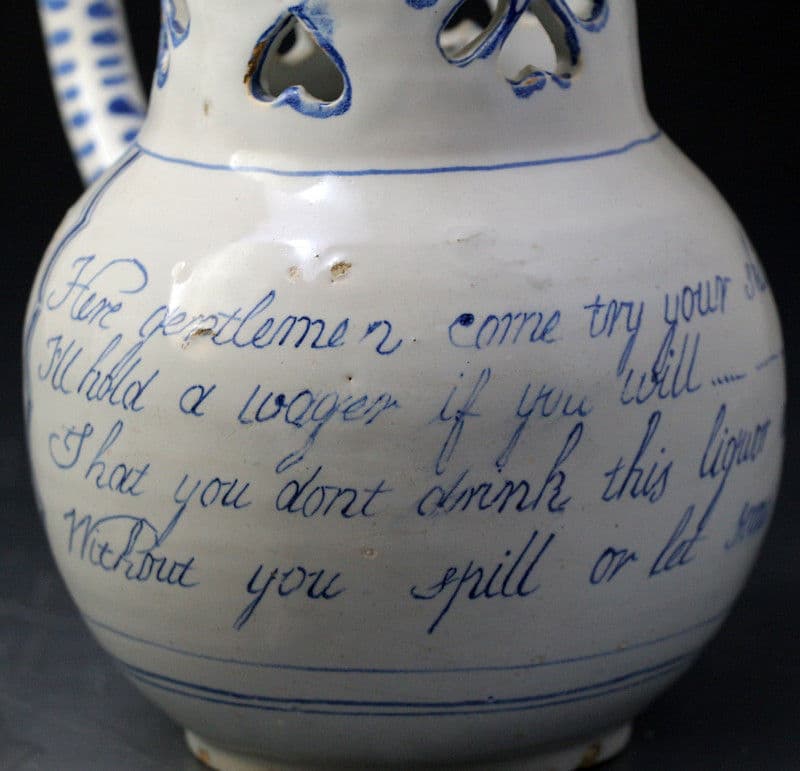 Here gentlemen come try your
I'll hold a wager if you will
That you dont drink this liquor
Without you spill or let